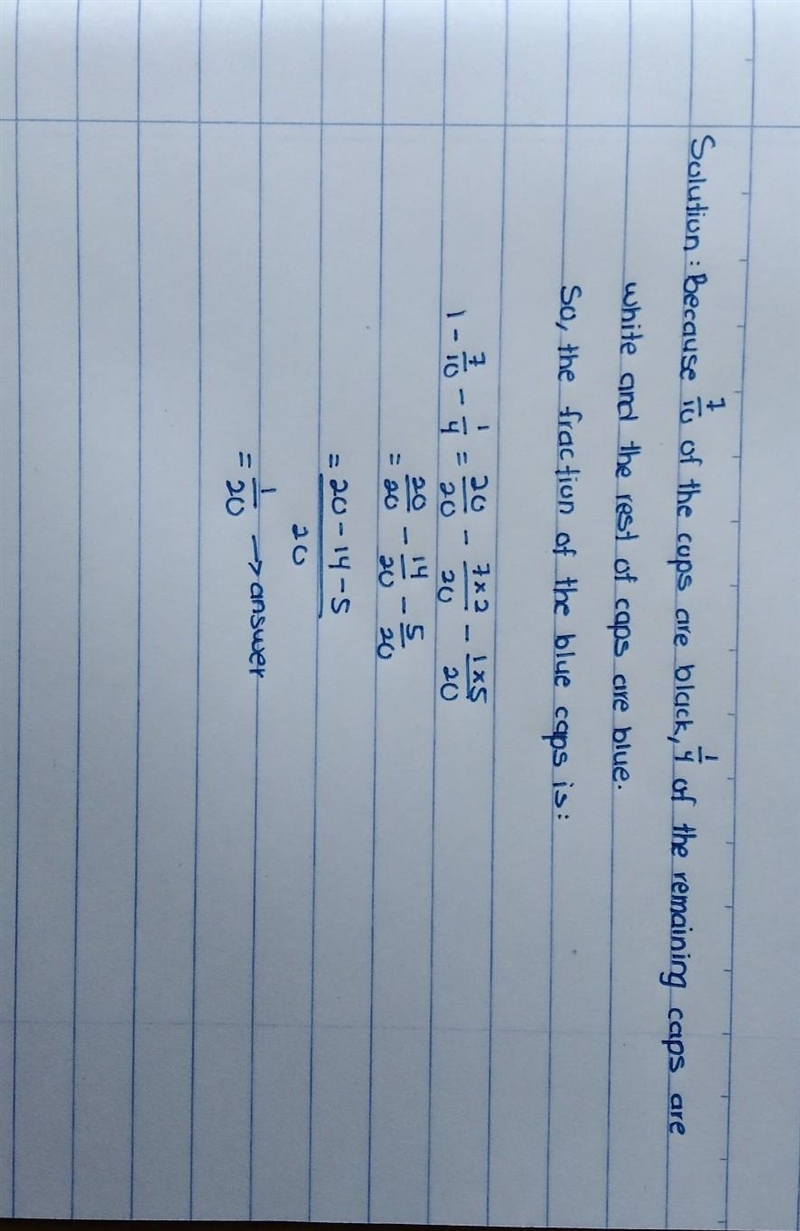 Solution : Because 7/10 of the caps are black, 1/4 of the remaining caps are
white and the rest of caps are blue.
So, the fraction of the blue caps is :
1 - 7/10 - 1/4 = 20/20 - 7×2/20 - 1×5/20
= 20/20 - 14/20 - 5/20
= 20 - 14 - 5/20
= 1/20 → answer